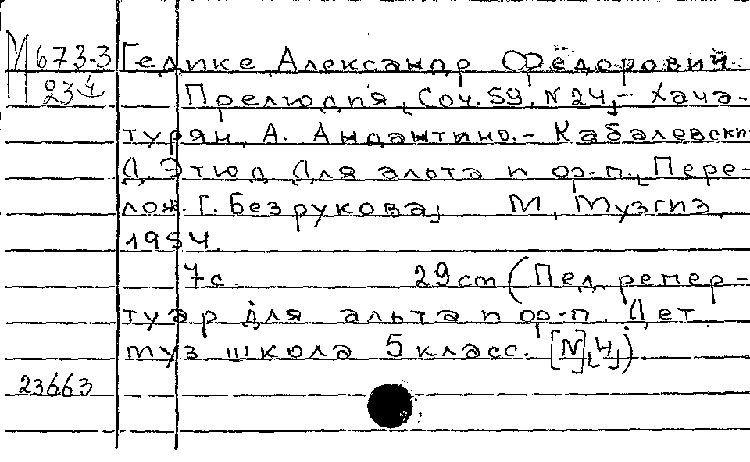 М673-3 Гедике Александр Фёдорович.
23 4 Прелюдия, Соч. 59, N24,- Хача-
турян, А. Андантино.- Кабалевски
Д. Этюд Для альта и ф.-п., [Пере-
лож. Г. Безрукова] М, Музгиз,
1954.
7с 29cm (Пед. репер-
туар для альта и ф-п. Дет.
муз школа 5 класс. [N],[4]).
23663